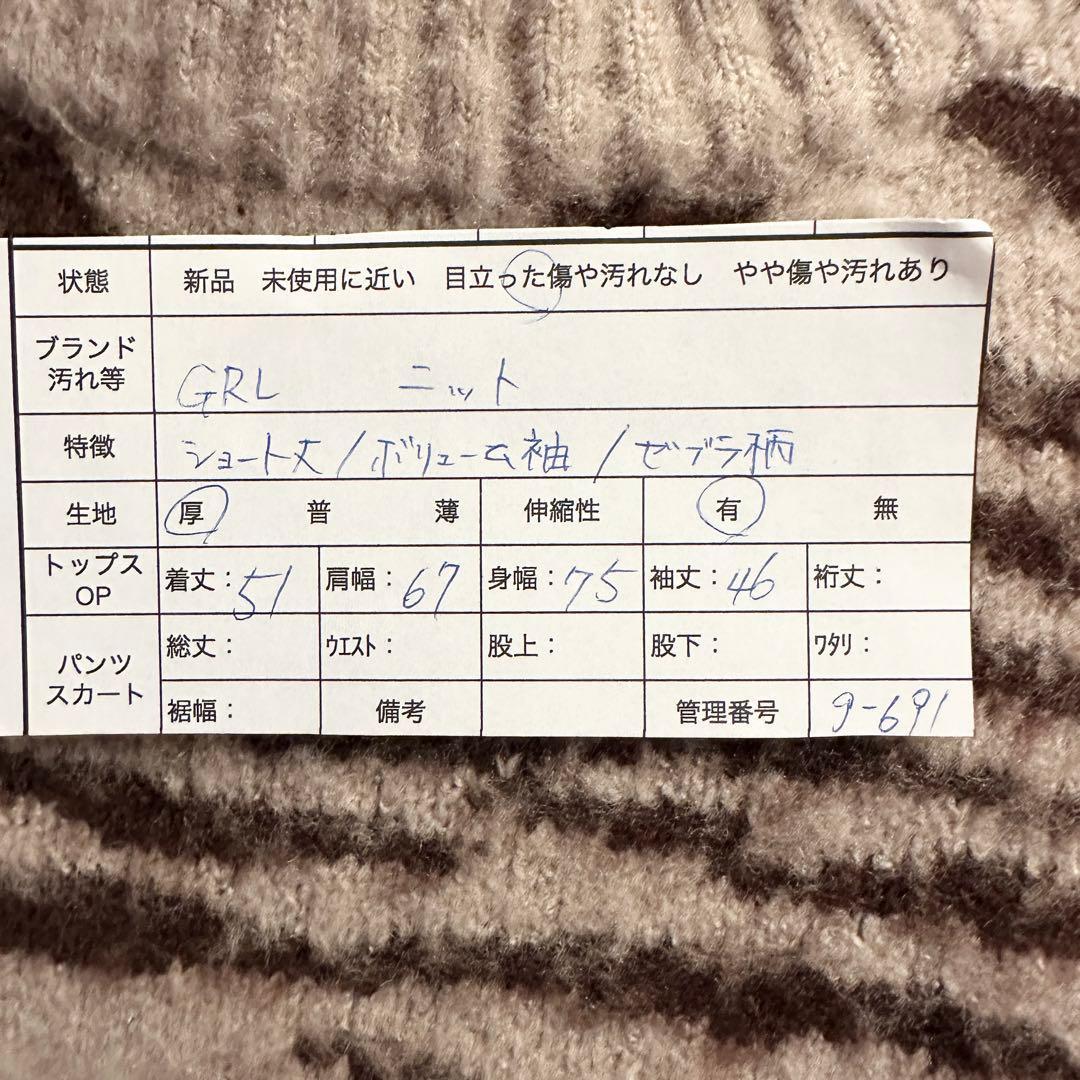 状態 新品 未使用に近い 目立った傷や汚れなし やや傷や汚れあり
ブランド
汚れ等 GRL ニット
特徴 ショート丈/ボリューム袖/ゼブラ柄
生地 厚 普 薄 伸縮性 有 無
トップス
OP 着丈:51 肩幅:67 身幅:75 袖丈:46 裄丈:
パンツ
スカート 総丈: ウエスト: 股上: 股下: ワタリ:
裾幅: 備考 管理番号 9-691